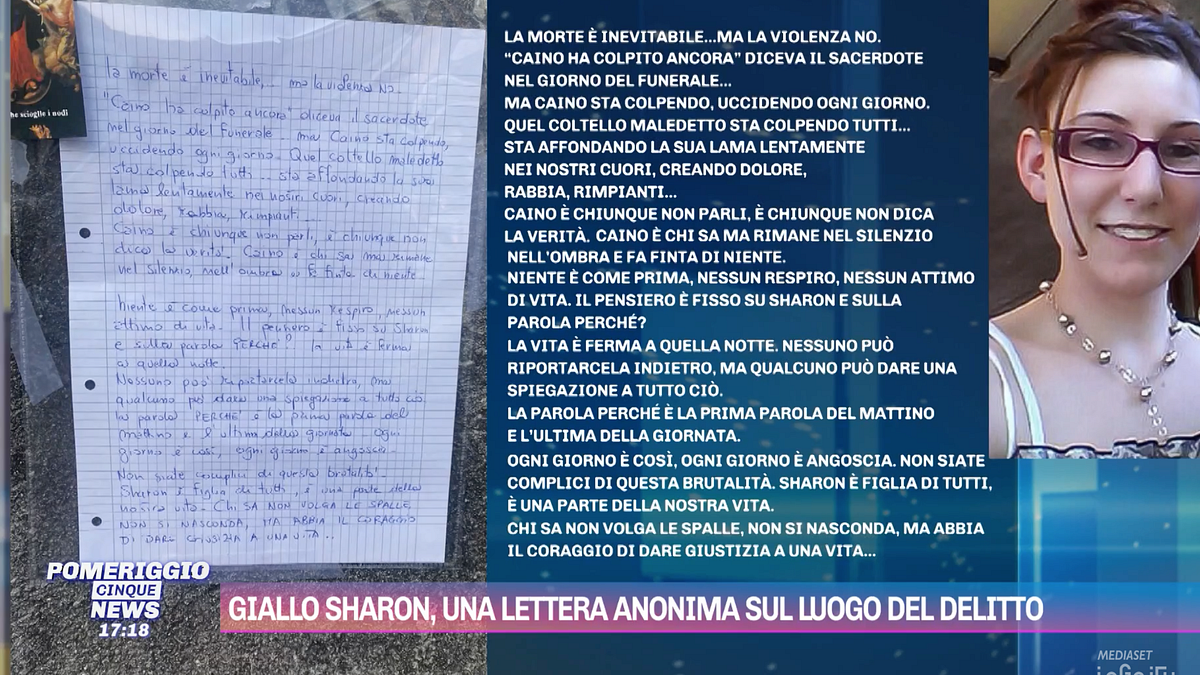 he scioglie i nodi
la morte è inevitabile,... ma la violenza NO.
"Caino ha colpito ancora" diceva il sacerdote
nel giorno del funerale... ma Caino sta colpendo,
uccidendo ogni giorno. Quel coltello maledetto
sta colpendo tutti... sta affondando la sua
lama lentamente nei nostri cuori, creando
dolore, rabbia, rimpianti...
Caino è chiunque non parli, è chiunque non
dica la verità. Caino è chi sa ma rimane
nel silenzio, nell'ombra e fa finta di niente.
Niente è come prima, nessun respiro, nessun
attimo di vita. Il pensiero è fisso su Sharon
e sulla parola PERCHÉ? la vita è ferma
a quella notte.
Nessuno può riportarcela indietro, ma
qualcuno può dare una spiegazione a tutto ciò
la parola PERCHÉ è la prima parola del
mattino e l'ultima della giornata. ogni
giorno è così, ogni giorno è angoscia.
Non siate complici di questa brutalità.
Sharon è figlia di tutti, è una parte della
nostra vita. CHI SA NON VOLGA LE SPALLE,
NON SI NASCONDA, MA ABBIA IL CORAGGIO
DI DARE GIUSTIZIA A UNA VITA...
LA MORTE È INEVITABILE...MA LA VIOLENZA NO.
“CAINO HA COLPITO ANCORA” DICEVA IL SACERDOTE
NEL GIORNO DEL FUNERALE...
MA CAINO STA COLPENDO, UCCIDENDO OGNI GIORNO.
QUEL COLTELLO MALEDETTO STA COLPENDO TUTTI...
STA AFFONDANDO LA SUA LAMA LENTAMENTE
NEI NOSTRI CUORI, CREANDO DOLORE,
RABBIA, RIMPIANTI...
CAINO È CHIUNQUE NON PARLI, È CHIUNQUE NON DICA
LA VERITÀ. CAINO È CHI SA MA RIMANE NEL SILENZIO
NELL'OMBRA E FA FINTA DI NIENTE.
NIENTE È COME PRIMA, NESSUN RESPIRO, NESSUN ATTIMO
DI VITA. IL PENSIERO È FISSO SU SHARON E SULLA
PAROLA PERCHÉ?
LA VITA È FERMA A QUELLA NOTTE. NESSUNO PUÒ
RIPORTARCELA INDIETRO, MA QUALCUNO PUÒ DARE UNA
SPIEGAZIONE A TUTTO CIÒ.
LA PAROLA PERCHÉ È LA PRIMA PAROLA DEL MATTINO
E L'ULTIMA DELLA GIORNATA.
OGNI GIORNO È COSÌ, OGNI GIORNO È ANGOSCIA. NON SIATE
COMPLICI DI QUESTA BRUTALITÀ. SHARON È FIGLIA DI TUTTI,
È UNA PARTE DELLA NOSTRA VITA.
CHI SA NON VOLGA LE SPALLE, NON SI NASCONDA, MA ABBIA
IL CORAGGIO DI DARE GIUSTIZIA A UNA VITA...
POMERIGGIO
CINQUE
NEWS
17:18
GIALLO SHARON, UNA LETTERA ANONIMA SUL LUOGO DEL DELITTO
MEDIASET